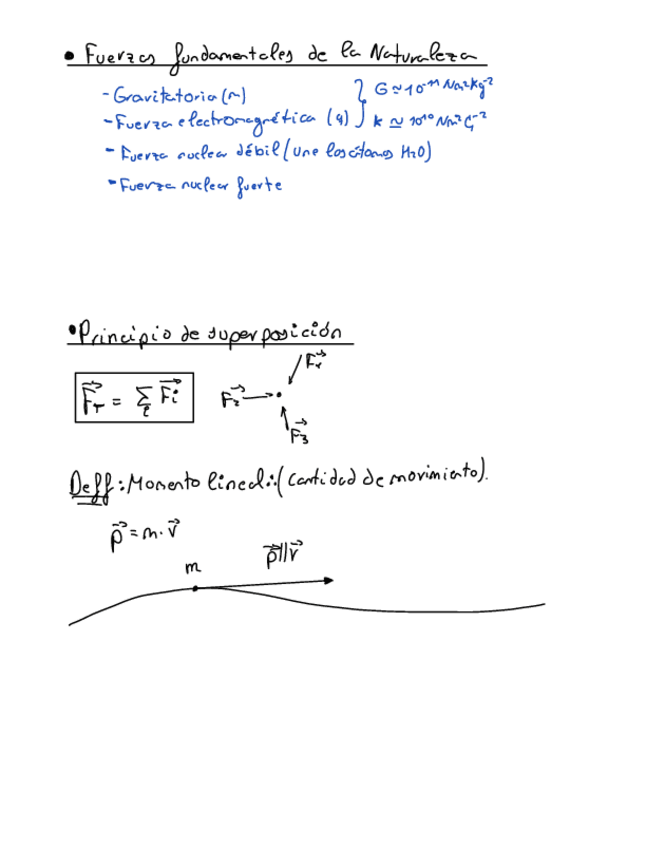 • Fuerzas fundamentales de la Naturaleza
- Gravitatoria (m) } G ≃ 10⁻¹¹ Nm²kg⁻²
- Fuerza electromagnética (q) } k ≃ 10¹⁰ Nm²C⁻²
- Fuerza nuclear débil (une los átomos H₂O)
- Fuerza nuclear fuerte
• Principio de superposición
F⃗₁
F⃗_T = Σ_i F⃗i F⃗₂ →
F⃗₃
Deff: Momento lineal: (cantidad de movimiento).
p⃗ = m · v⃗
m p⃗ || v⃗